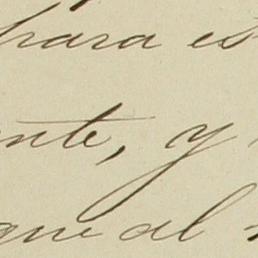 para es
nte, y
que al